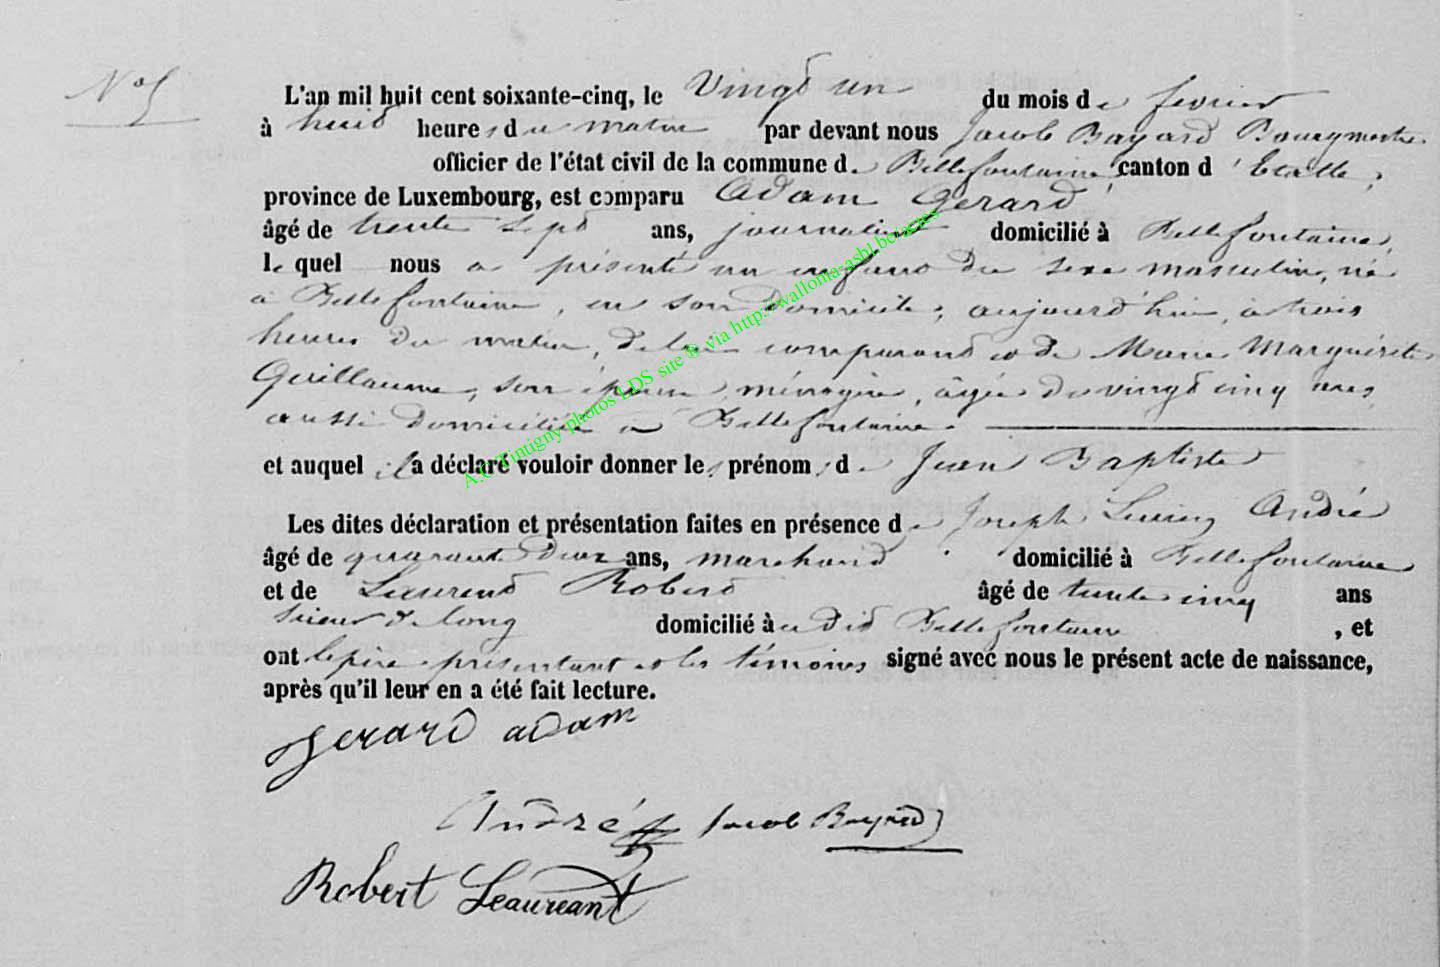 N° 5
L'an mil huit cent soixante-cinq, le Vingt un du mois de fevrier
à huit heures du matin par devant nous Jacob Bayard Bourgmestre
officier de l'état civil de la commune de Bellefontaine, canton d'Etalle,
province de Luxembourg, est comparu Adam Gerard,
âgé de trente sept ans, journalier domicilié à Bellefontaine,
lequel nous a présenté un enfant du sexe masculin, né
à Bellefontaine, en son domicile, aujourd'hui, à trois
heures du matin, de lui comparant et de Marie Marguerite
Guillaume, son épouse, ménagère, âgée de vingt cinq ans,
aussi domiciliée à Bellefontaine.
et auquel il a déclaré vouloir donner les prénoms de Jean Baptiste
Les dites déclaration et présentation faites en présence de Joseph André
âgé de quarante deux ans, marchand domicilié à Bellefontaine
et de Laurent Robert âgé de trente cinq ans
scieur de long domicilié à dit Bellefontaine, et
ont le père présentant et les témoins signé avec nous le présent acte de naissance,
après qu'il leur en a été fait lecture.
Gerard adam
André Jacob Bayard
Robert Leaureant
A.C Tintigny photos LDS site ® via http://wallonia-asbl.be/actes